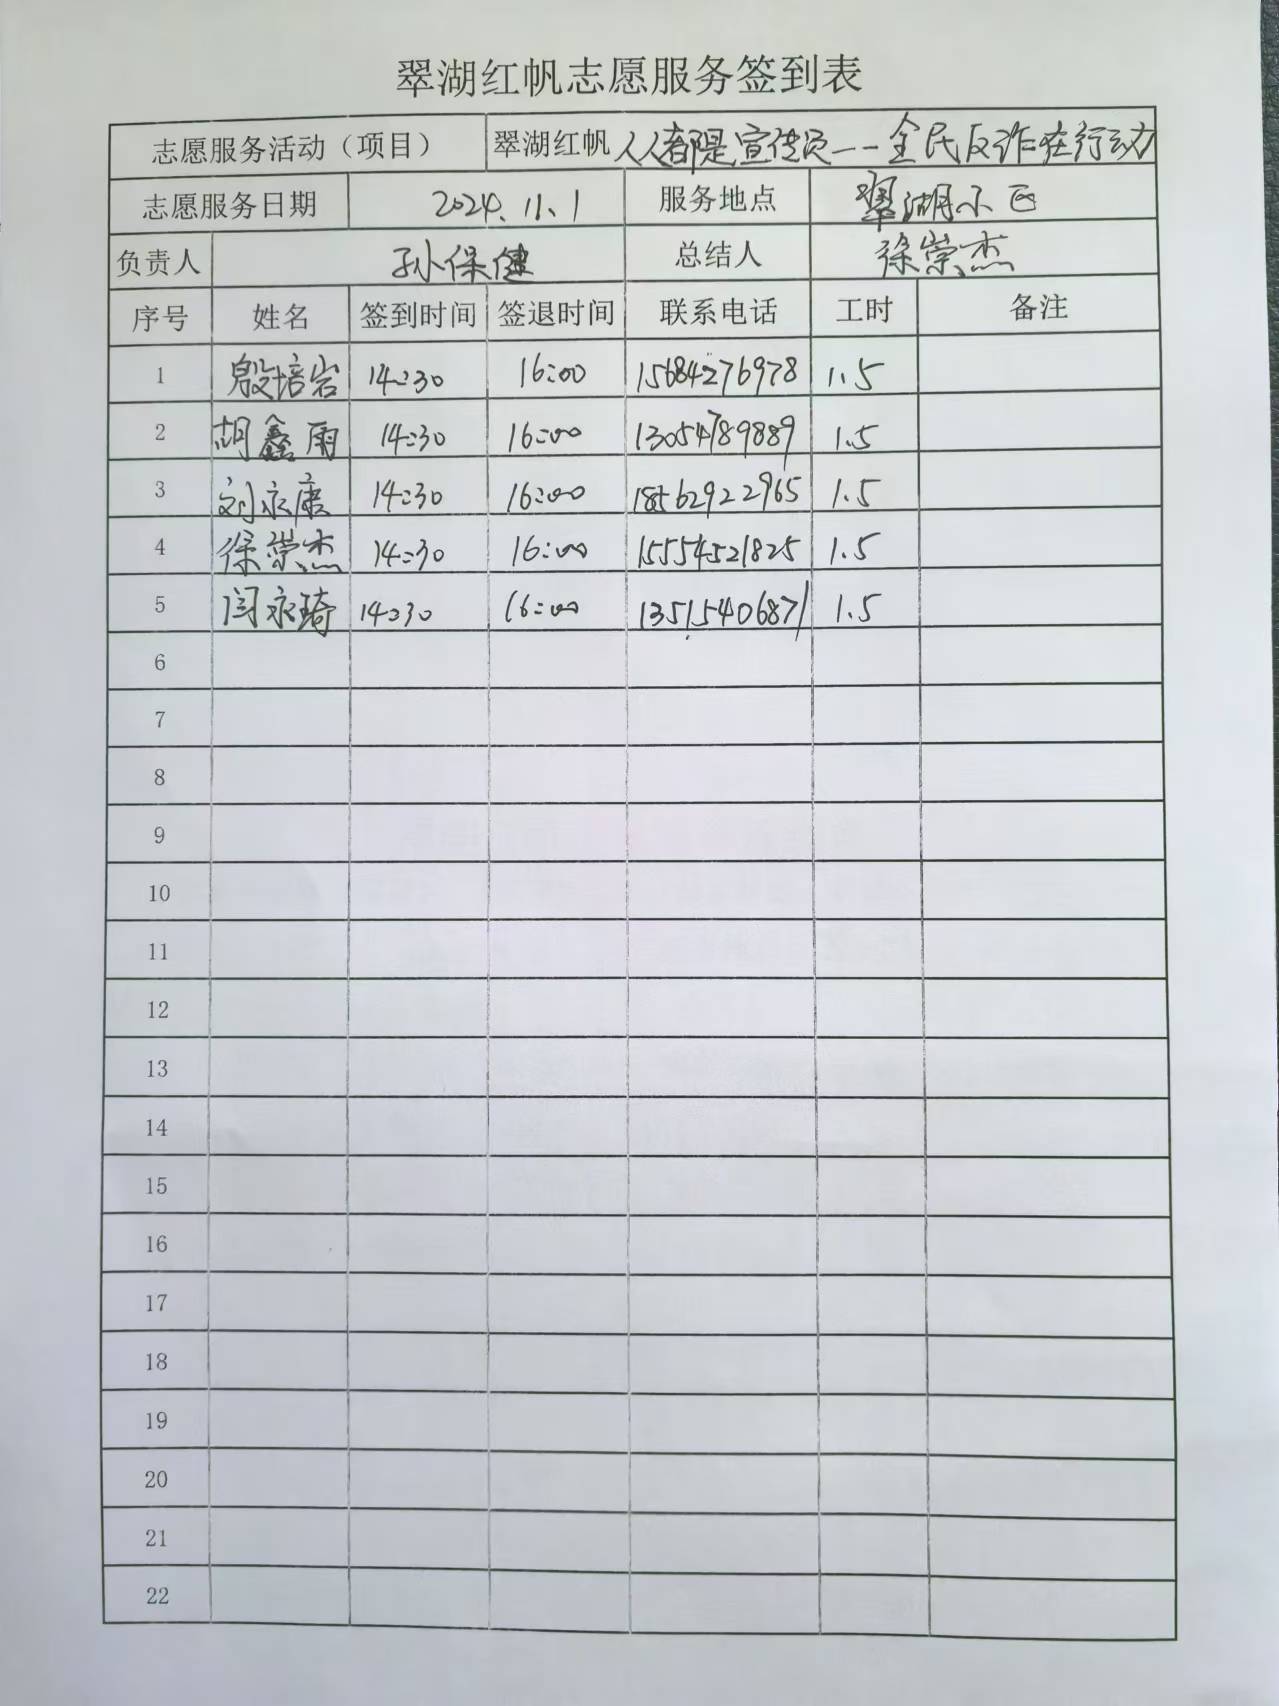 翠湖红帆志愿服务签到表
志愿服务活动（项目） 翠湖红帆 人人都是宣传员——全民反诈在行动
志愿服务日期 2024.11.1 服务地点 翠湖小区
负责人 孙保健 总结人 徐崇杰
序号 姓名 签到时间 签退时间 联系电话 工时 备注
1 殷培岩 14:30 16:00 15684276978 1.5
2 胡鑫雨 14:30 16:00 13054789889 1.5
3 刘永康 14:30 16:00 18562922965 1.5
4 徐崇杰 14:30 16:00 15554521825 1.5
5 闫永琦 14:30 16:00 13515406871 1.5
6
7
8
9
10
11
12
13
14
15
16
17
18
19
20
21
22